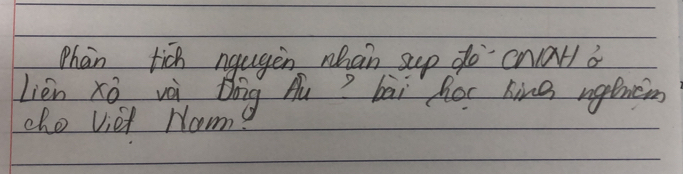 Phân tích nguyên nhân sụp đổ CNXH ở
Liên Xô và Đông Âu ? bài học kinh nghiệm
cho Việt Nam?